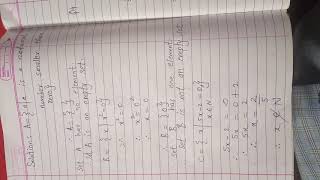 Q4
Solution: A = {x|x is a natural
number smaller than
zero}
∴ A = { }
Set A has no element
∴ A is an empty set
B = {x | x² = 0}
∴ x² = 0
∴ x = 0
∴ B = {0}
Set B has one element
set B is not an empty set
C = {x | 5x - 2 = 0,
x ∈ N}
5x - 2 = 0
∴ 5x = 0 + 2
∴ 5x = 2
∴ x = 2/5
∴ x ∉ N